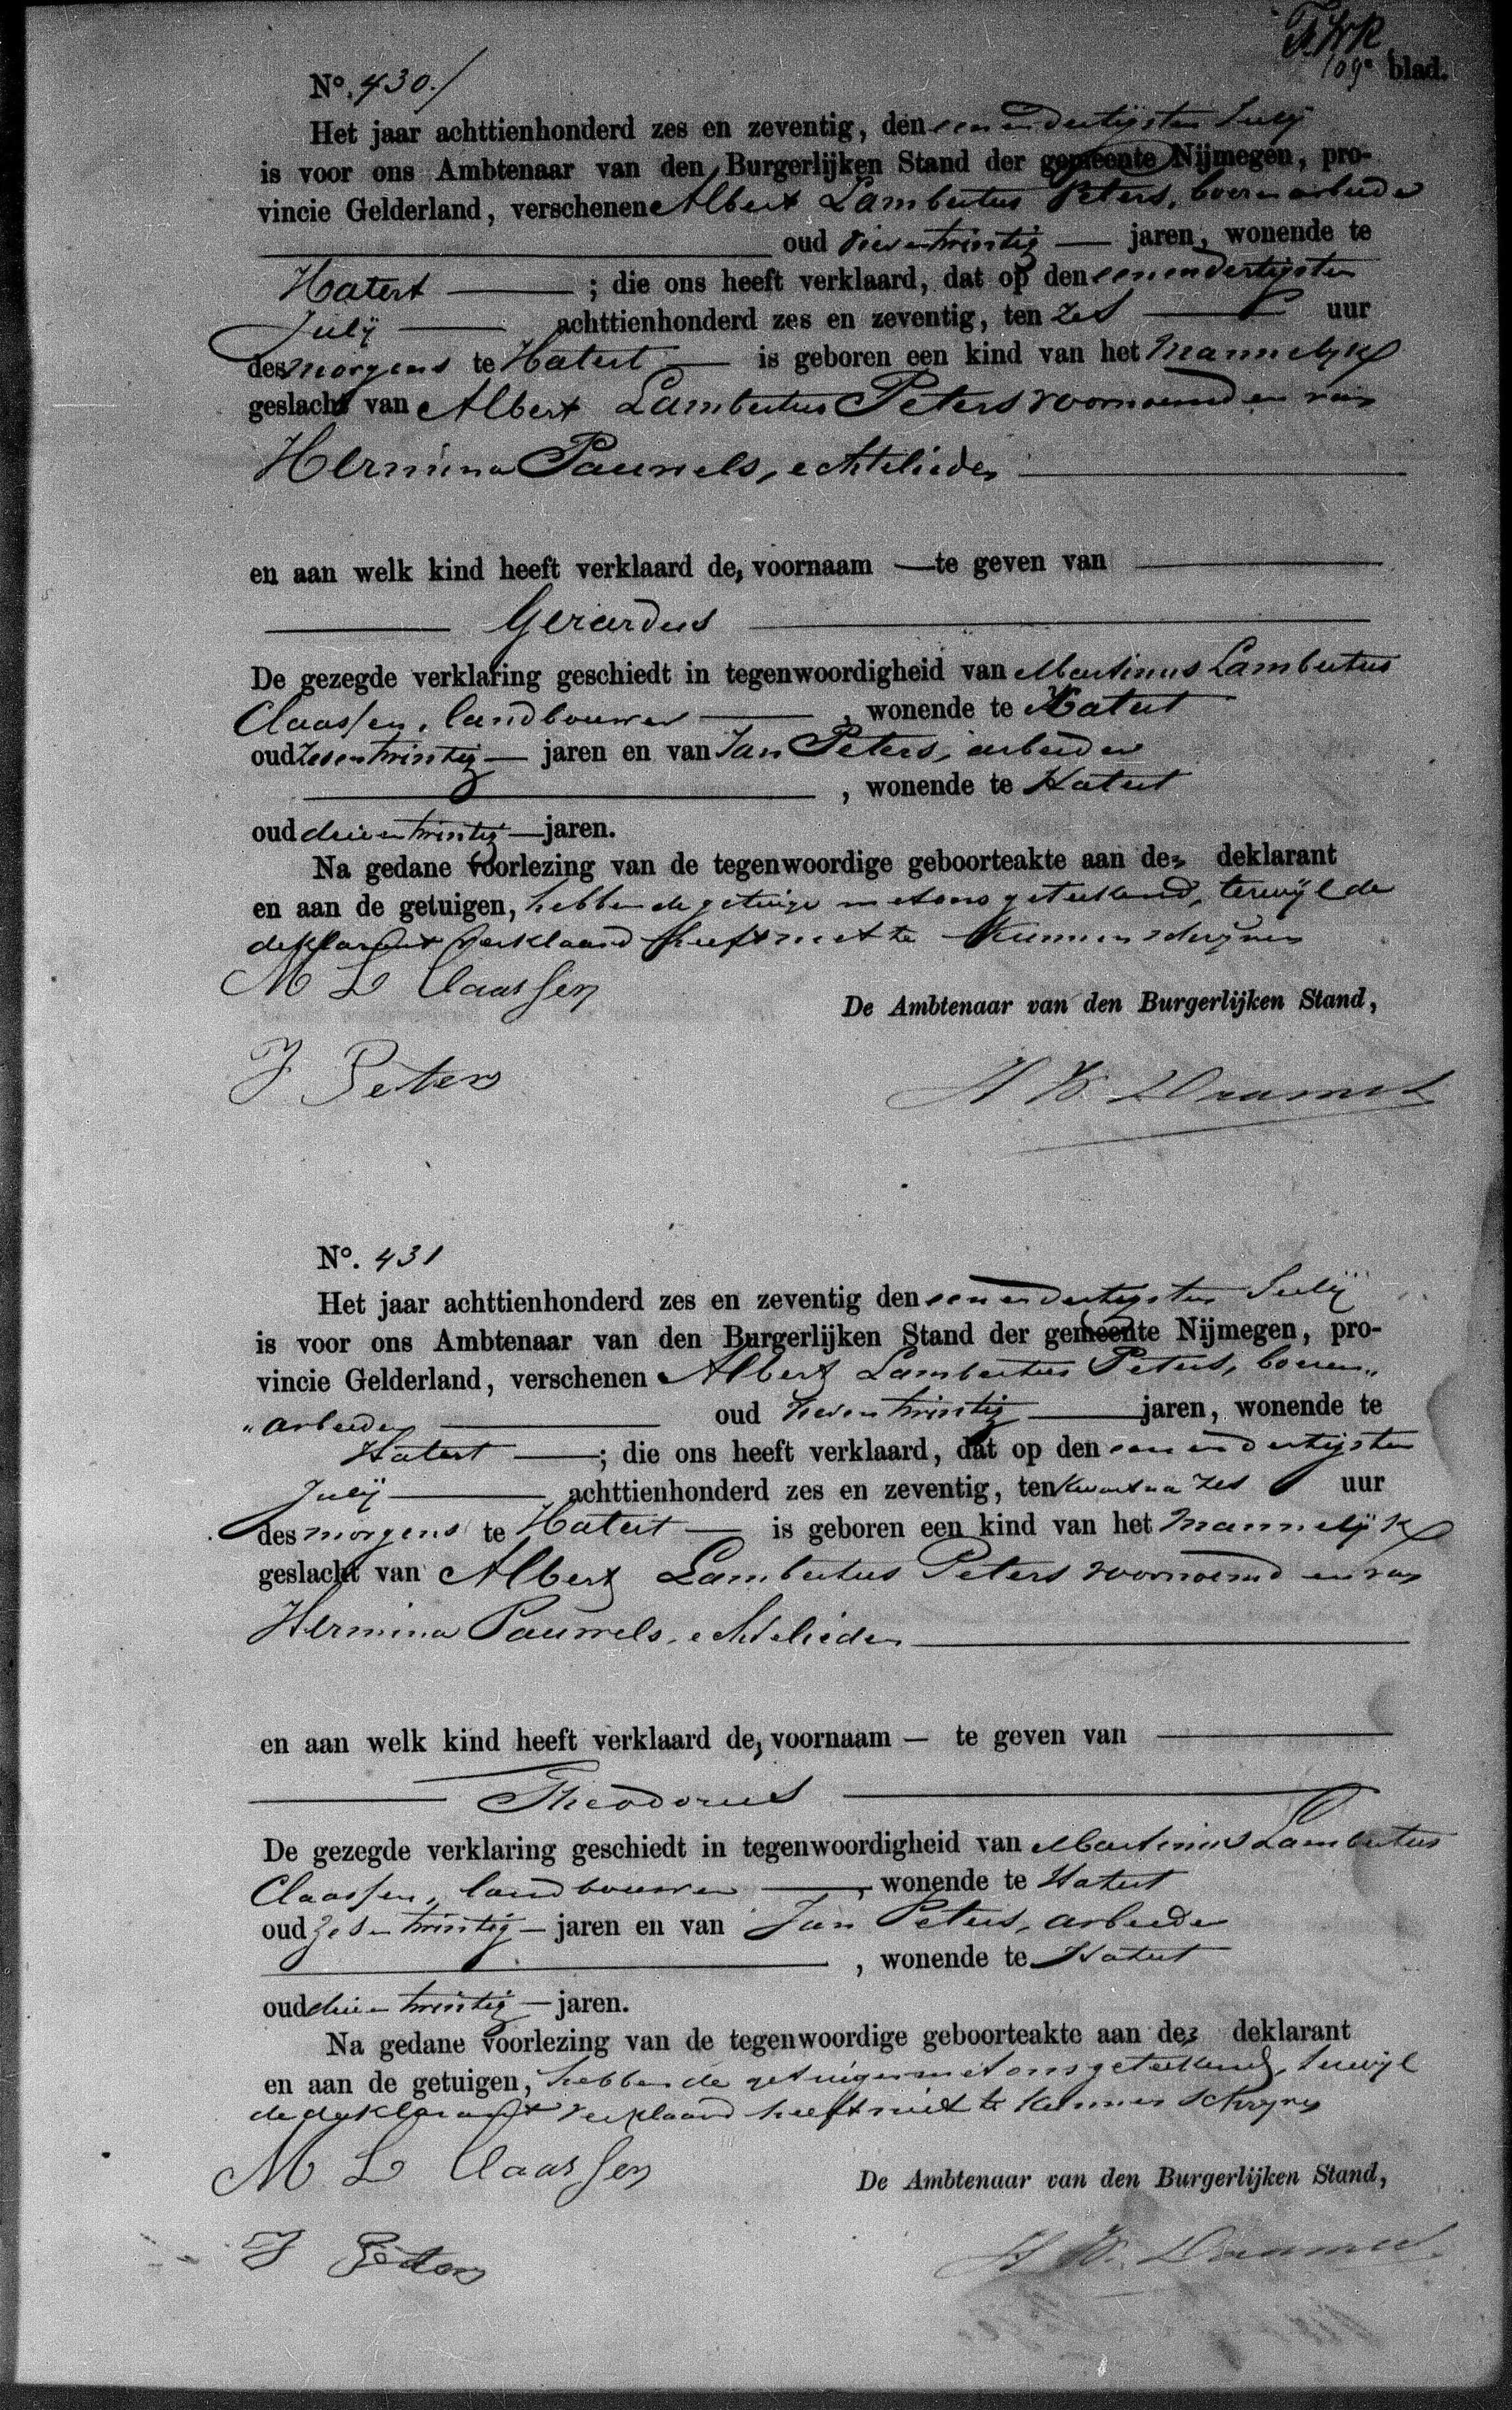 109e blad.
No. 430.
Het jaar achttienhonderd zes en zeventig, den een en dertigsten Julij
is voor ons Ambtenaar van den Burgerlijken Stand der gemeente Nijmegen, pro-
vincie Gelderland, verschenen Albert Lambertus Peters, boerenarbeider
oud jaren, wonende te
Hatert ; die ons heeft verklaard, dat op den een en dertigsten
Julij achttienhonderd zes en zeventig, ten zes uur
des morgens te Hatert is geboren een kind van het Mannelijk
geslacht van Albert Lambertus Peters voornoemd en van
Hermina Pauwels, echtelieden
en aan welk kind heeft verklaard de, voornaam — te geven van
Gerardus
De gezegde verklaring geschiedt in tegenwoordigheid van Martinus Lambertus
Claassen, landbouwer , wonende te Hatert
oud zesentwintig — jaren en van Jan Peters, arbeider
, wonende te Hatert
oud drieentwintig — jaren.
Na gedane voorlezing van de tegenwoordige geboorteakte aan de, deklarant
en aan de getuigen, hebben de getuigen met ons geteekend, terwijl de
deklarant verklaard heeft niet te kunnen schrijven
M L Claassen
De Ambtenaar van den Burgerlijken Stand,
J Peters
No. 431
Het jaar achttienhonderd zes en zeventig den een en dertigsten Julij
is voor ons Ambtenaar van den Burgerlijken Stand der gemeente Nijmegen, pro-
vincie Gelderland, verschenen Albert Lambertus Peters, boeren„
„arbeider oud jaren, wonende te
Hatert ; die ons heeft verklaard, dat op den een en dertigsten
Julij achttienhonderd zes en zeventig, ten kwart na zes uur
des morgens te Hatert is geboren een kind van het mannelijk
geslacht van Albert Lambertus Peters voornoemd en van
Hermina Pauwels, echtelieden
en aan welk kind heeft verklaard de, voornaam — te geven van
Theodorus
De gezegde verklaring geschiedt in tegenwoordigheid van Martinus Lambertus
Claassen, landbouwer , wonende te Hatert
oud zesentwintig — jaren en van Jan Peters, arbeider
, wonende te Hatert
oud drieentwintig — jaren.
Na gedane voorlezing van de tegenwoordige geboorteakte aan de, deklarant
en aan de getuigen, hebben de getuigen met ons geteekend, terwijl
de deklarant verklaard heeft niet te kunnen schrijven
M L Claassen
De Ambtenaar van den Burgerlijken Stand,
J Peters